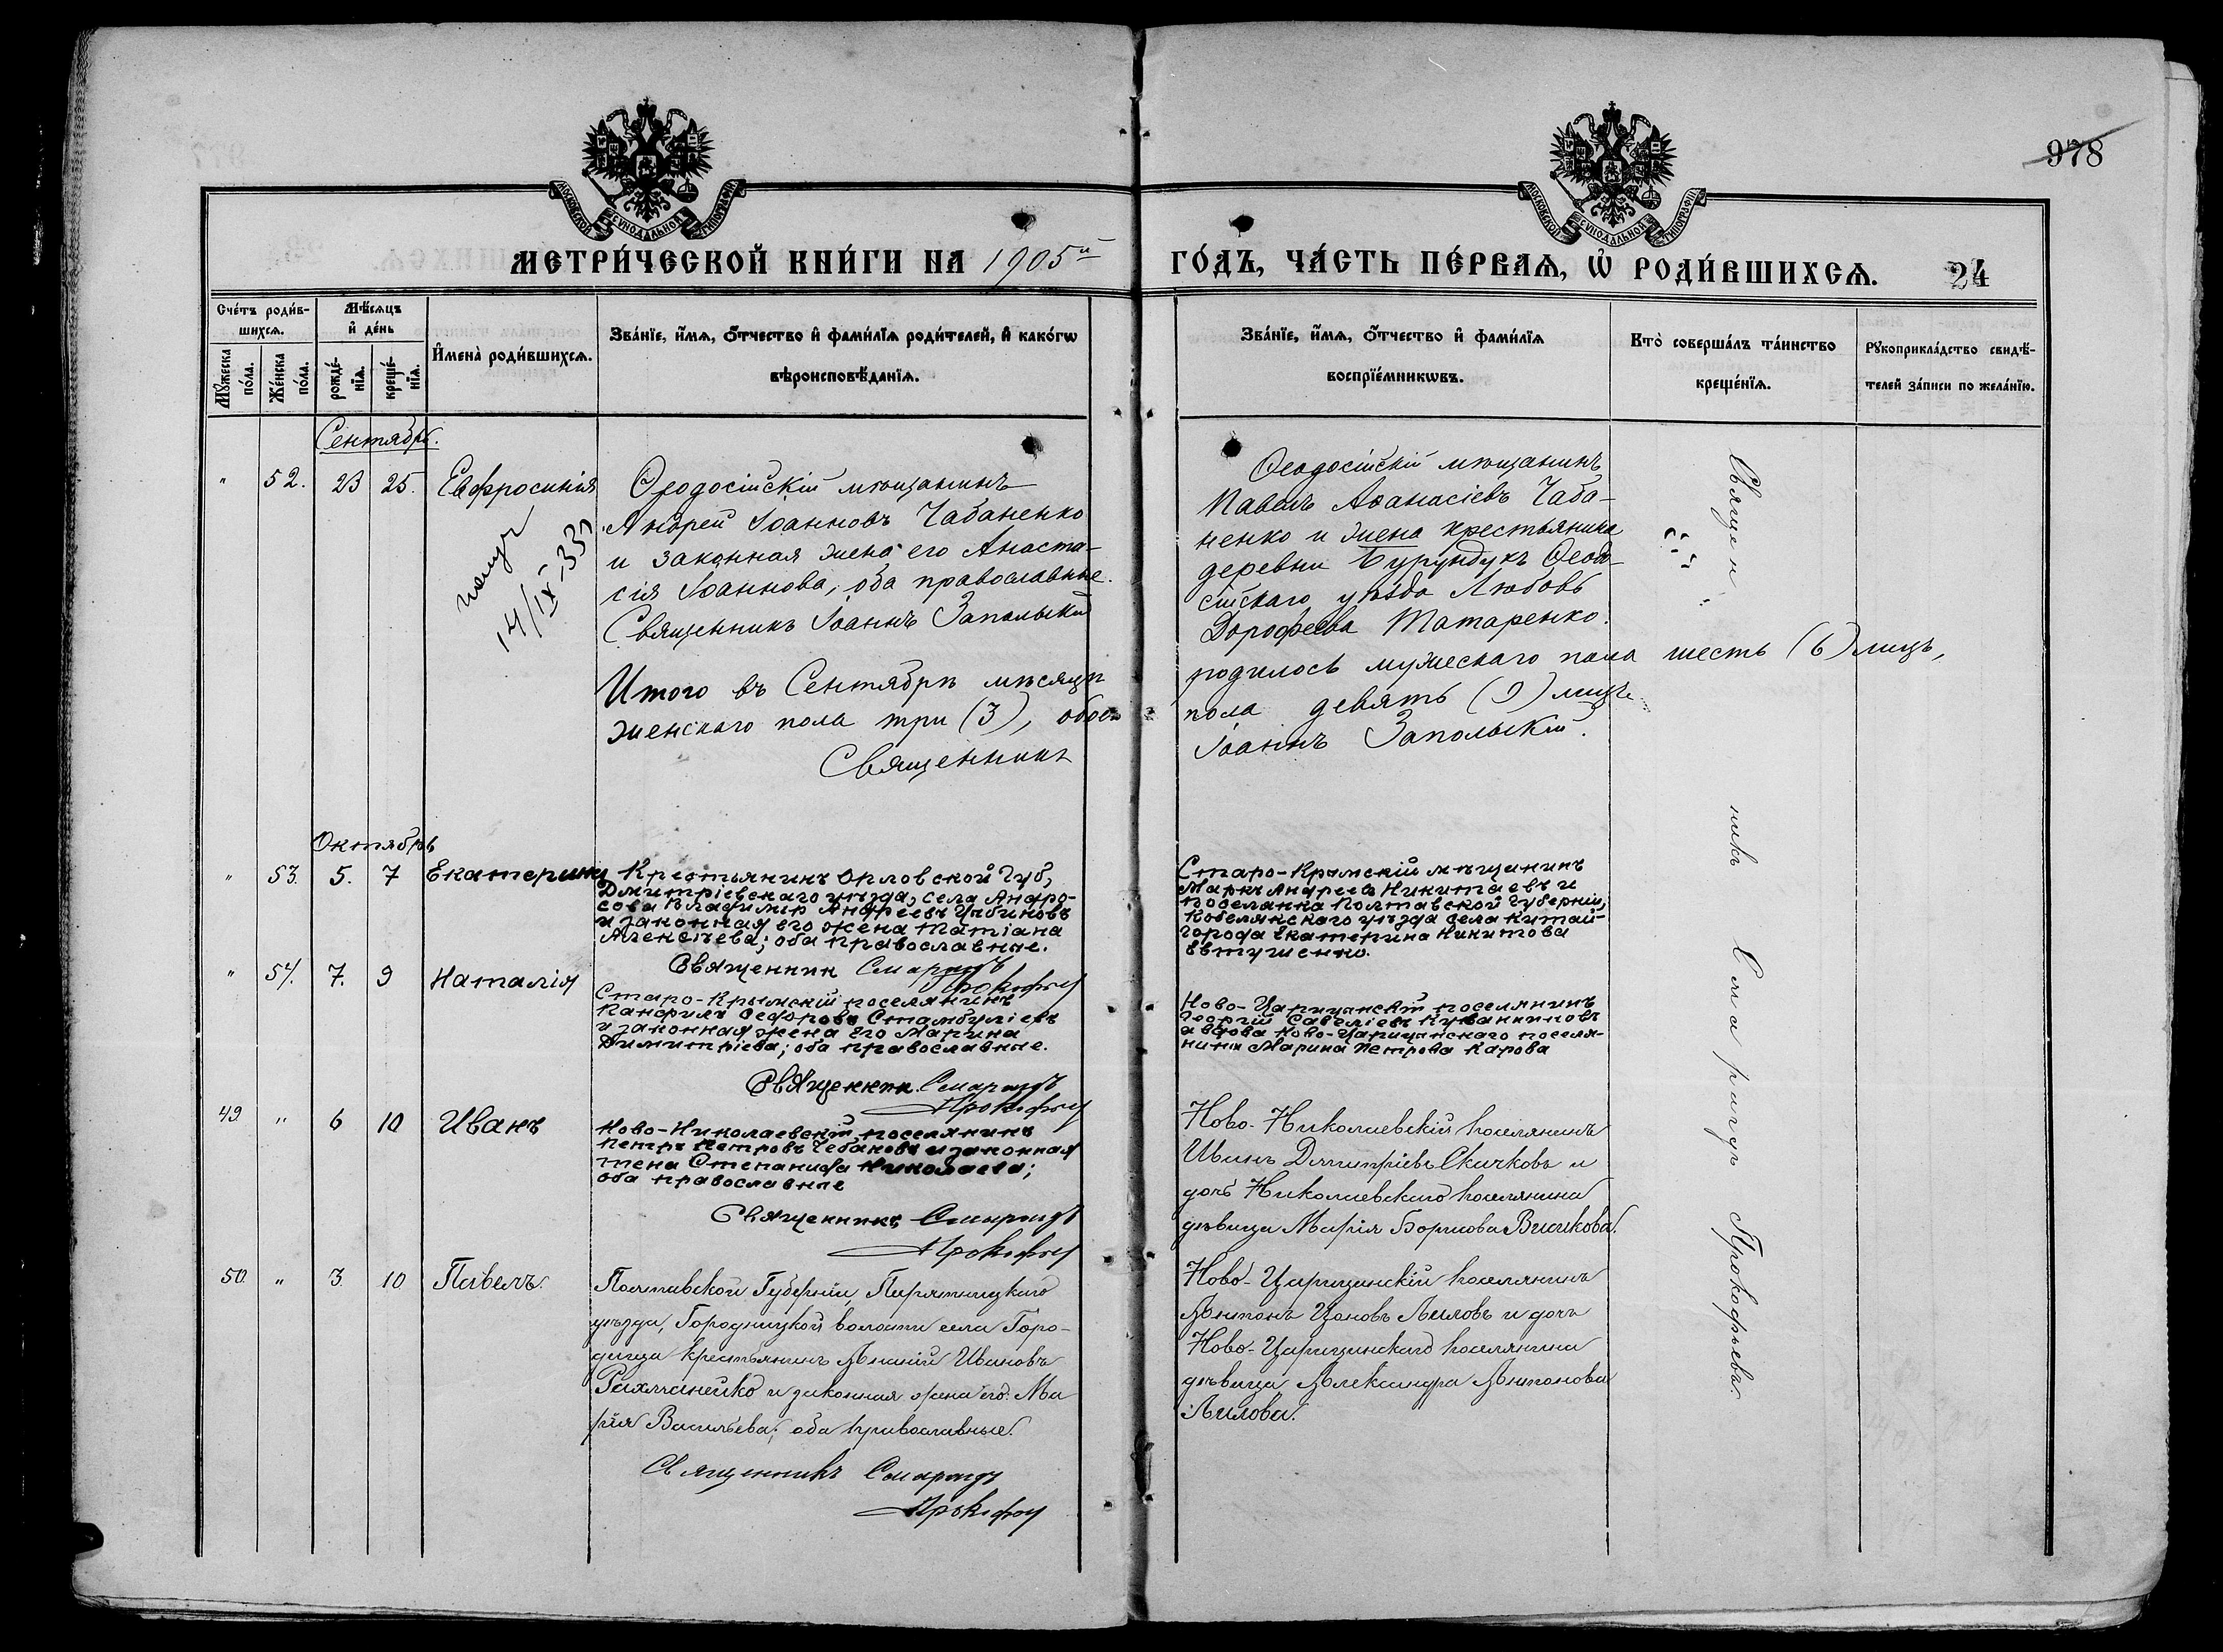 978
МОСКОВСКОЙ СѴНОДАЛЬНОЙ ТИПОГРАФІИ
МОСКОВСКОЙ СѴНОДАЛЬНОЙ ТИПОГРАФІИ
МЕТРИ́ЧЕСКОЙ КНИ́ГИ НА 1905й ГО́ДЪ, ЧА́СТЬ ПЕ́РВАѦ, Ѡ҆ РОДИ́ВШИХСѦ. 24
Сче́тъ роди́в-
шихсѧ.
Мѣ́сѧцъ
и҆ де́нь
Мꙋ́жеска по́ла.
Же́нска по́ла.
рожде́-нїѧ.
креще́-нїѧ.
И҆мена̀ роди́вшихсѧ.
Зва́нїе, и҆́мѧ, ѻ҆́тчество и҆ фами́лїѧ роди́телей, и҆ како́гѡ
вѣроисповѣ́данїѧ.
Зва́нїе, и҆́мѧ, ѻ҆́тчество и҆ фами́лїѧ
воспрїе́мникѡвъ.
Кто̀ соверша́лъ та́инство
креще́нїѧ.
Рꙋкоприкла́дство свидѣ́-
телей за́писи по жела́нїю.
Сентябрь.
" 52. 23 25. Евфросинія
14/IX-33
Ѳеодосійскій мѣщанинъ
Андрей Іоанновъ Чабаненко
и законная жена его Анаста-
сія Іоаннова, оба православные.
Священникъ Іоаннъ Запольскій
Ѳеодосійскій мѣщанинъ
Павелъ Аѳанасіевъ Чаба-
ненко и жена крестьянина
деревни Бурундукъ Ѳеодо-
сійскаго уѣзда Любовь
Дорофеева Татаренко.
Итого въ Сентябрѣ мѣсяцѣ родилось мужескаго пола шесть (6) лицъ,
женскаго пола три (3), обоего пола девять (9) лицъ.
Священникъ Іоаннъ Запольскій.
Октябрь
" 53. 5. 7 Екатерина
Крестьянинъ Орловской Губ,
Дмитріевскаго уѣзда, села Андро-
сова Владимір Андреевъ
и законная его жена Татіана
Алексѣева; оба православные.
Священник Смарагдъ
Прокофьев
Старо-Крымскій мѣщанинъ
Маркъ Андреевъ Никитаевъ и
поселянка Полтавской Губерніи,
Кобелякскаго уѣзда села Китай-
города Екатерина Никитова
Евтушенко.
" 54. 7. 9 Наталія
Старо-Крымскій поселянинъ
Панфилъ Ѳеодоровъ Стамбуліевъ
и законная жена его Марина
Димитріева; оба православные.
Священник Смарагдъ
Прокофьев
Ново-Царицынскій поселянинъ
Георгій Савеліевъ
вдова Ново-Царицынскаго поселя-
нина Марина Петрова Карова
49 " 6 10 Иванъ
Ново-Николаевскій поселянинъ
Петръ Петровъ Чебановъ и законная
жена Степанида Николаева;
оба православные
Священникъ Смарагдъ
Прокофьев
Ново-Николаевскій поселянинъ
Иванъ Дмитріевъ Скичковъ и
дочь Николаевскаго поселянина
дѣвица Марія Борисова
50 " 3. 10 Павелъ.
Полтавской Губерніи, Пирятинскаго
уѣзда, Городищкой волости села Горо-
дища крестьянинъ Ивановъ
Рахманейко и законная жена его Ма
рія Васильева; оба православные.
Священникъ Смарагдъ
Прокофьев
Ново-Царицинскій поселянинъ
Антонъ Цоновъ Лиловъ и дочь
Ново-Царицинскаго поселянина
дѣвица Александра Антонова
Лилова.
Священникъ Смарагдъ Прокофьевъ.